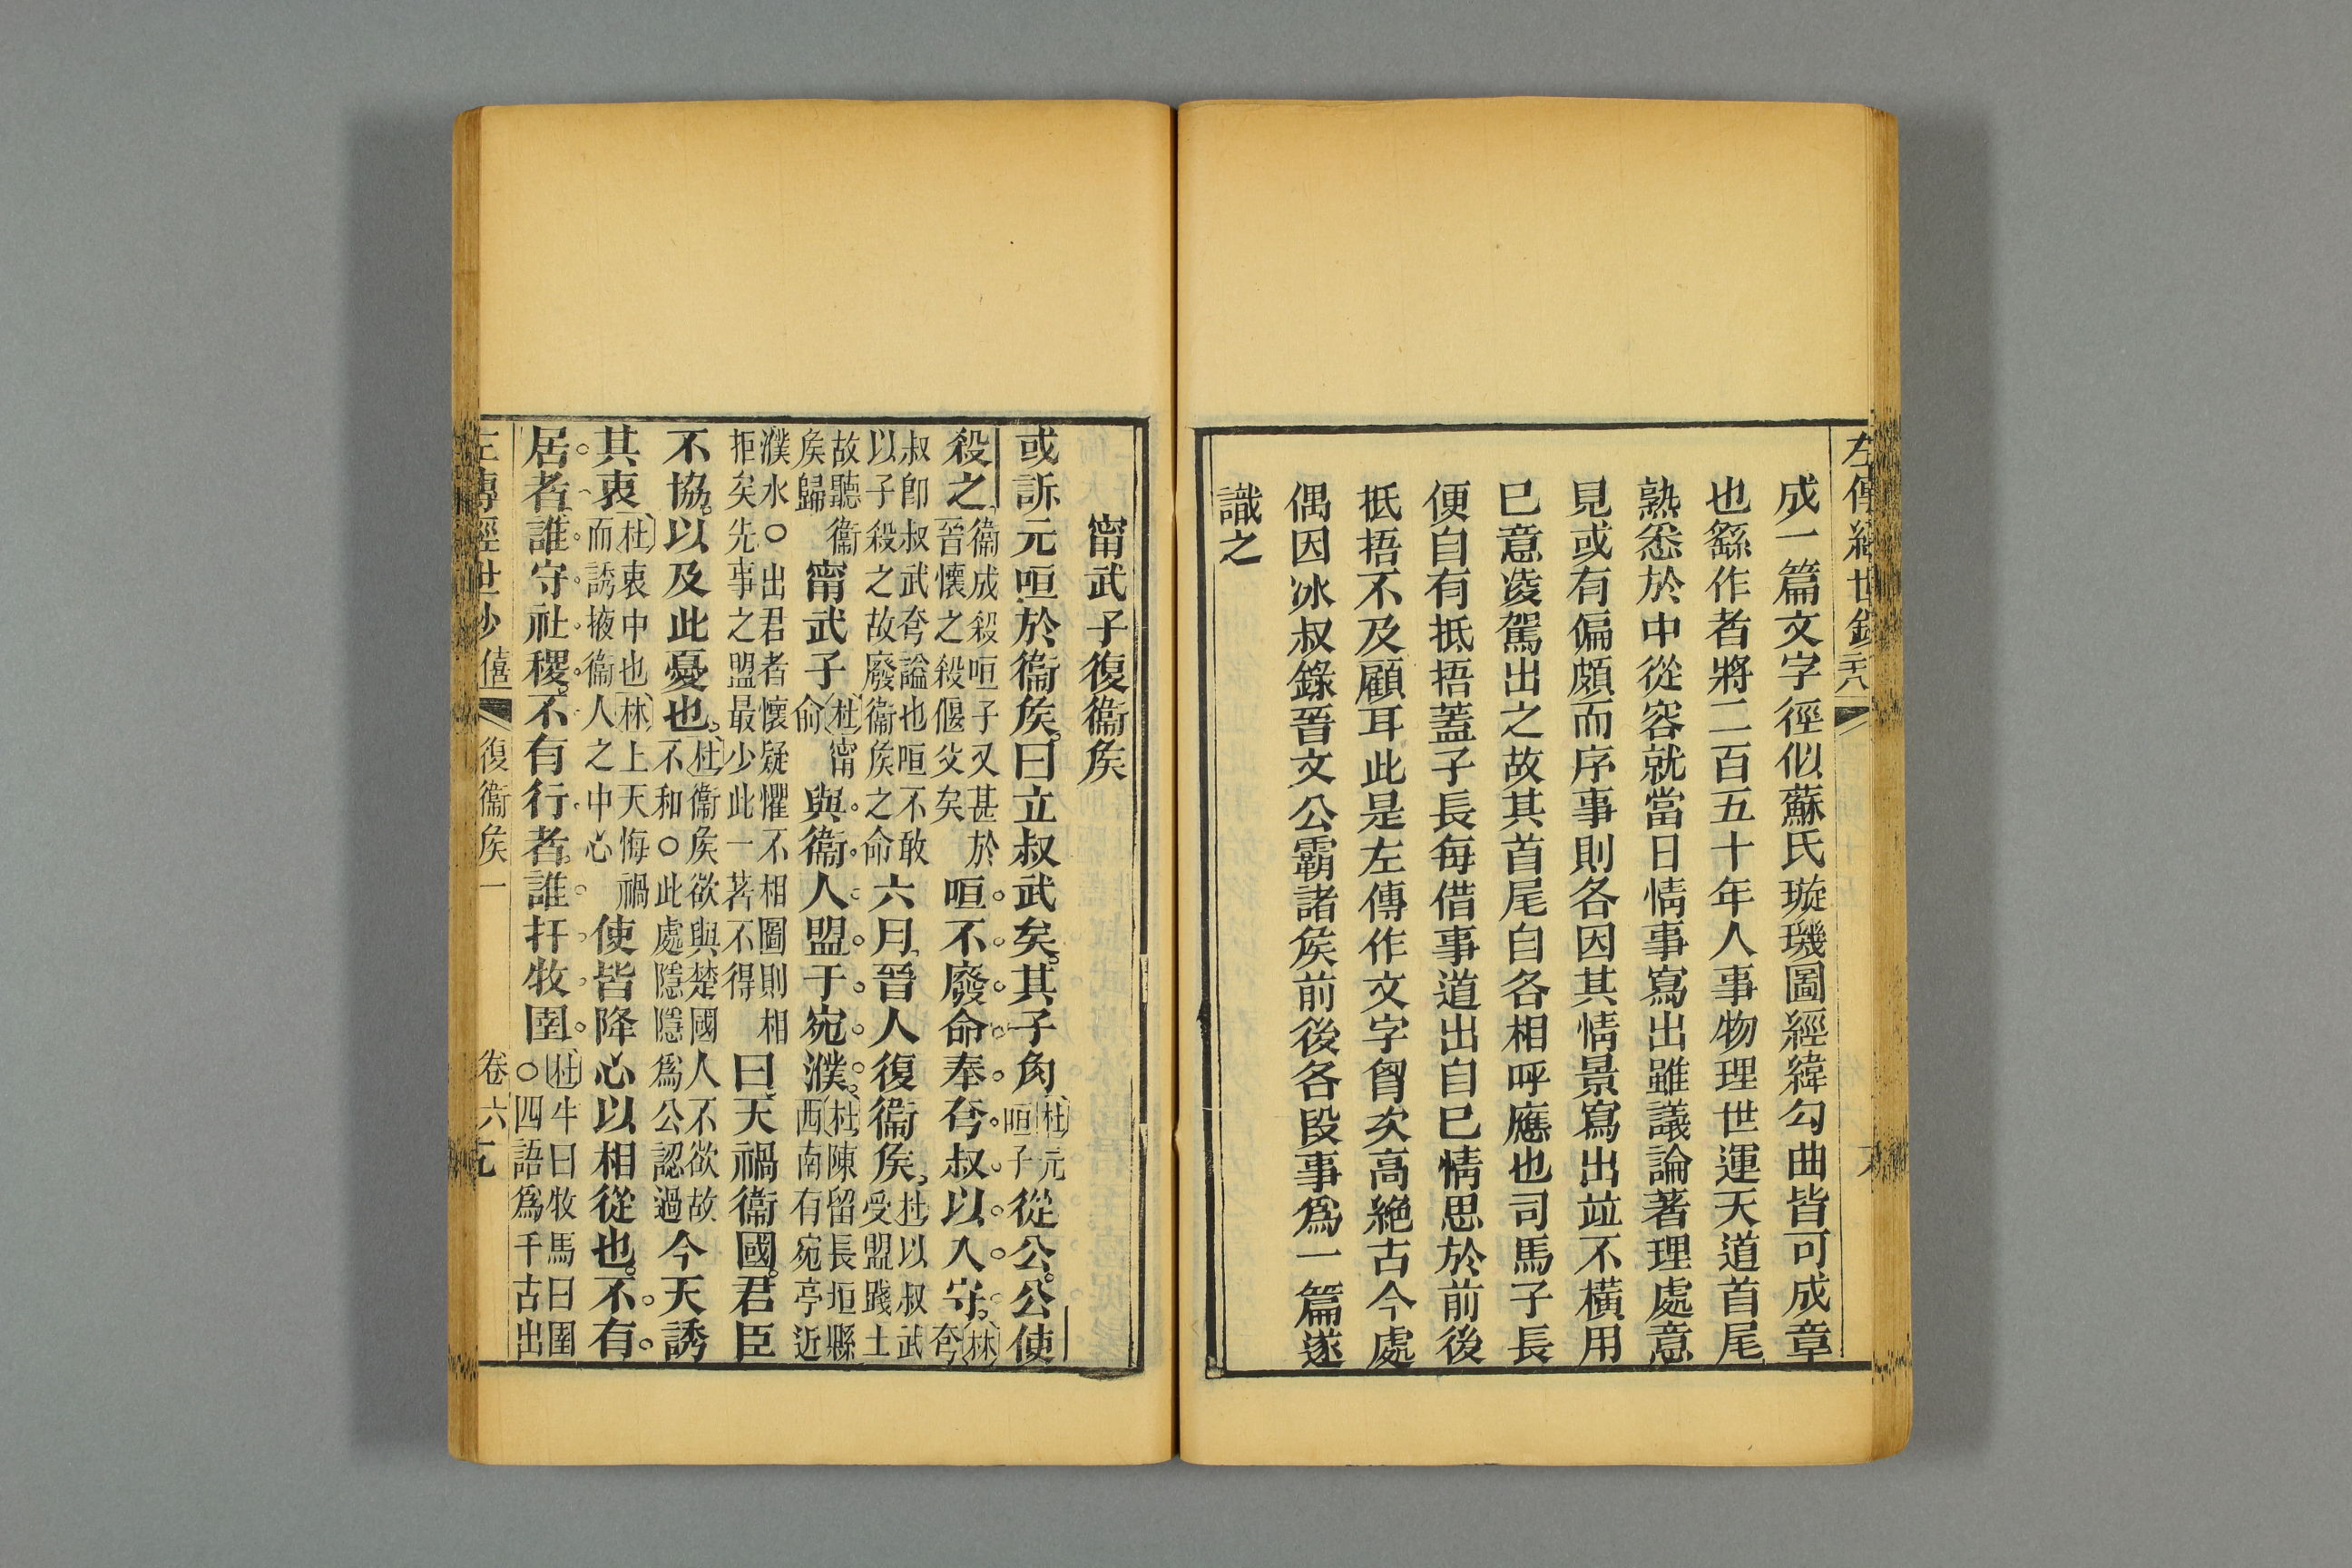 左傳經世
成一篇文字徑似蘇氏璇璣圖經緯勾曲皆可成章
也繇作者將二百五十年人事物理世運天道首尾
熟悉於中從容就當日情事寫出雖議論著理處意
見或有偏頗而序事則各因其情景寫出竝不橫用
已意凌駕出之故其首尾自各相呼應也司馬子長
便自有抵捂蓋子長每借事道出自已情思於前後
抵捂不及顧耳此是左傳作文字胷次高絶古今處
偶因冰叔錄晉文公霸諸侯前後各段事爲一篇遂
識之
甯武子復衞侯
或訴元咺於衞侯曰立叔武矣其子角杜元咺子從公公使
殺之衞成殺咺子又甚於晉懷之殺偃父矣咺不廢命奉夸叔以入守林夸
叔卽叔武夸謚也咺不敢以子殺之故廢衞侯之命六月晉人復衞侯杜以叔武受盟踐土
故聽衞侯歸甯武子杜甯俞與衞人盟于宛濮杜陳留長垣縣西南有宛亭近
濮水○出君者懷疑懼不相圖則相拒矣先事之盟最少此一著不得曰天禍衞國君臣
不協以及此憂也杜衞侯欲與楚國人不欲故不和○此處隱隱爲公認過今天誘
其衷杜衷中也林上天悔禍而誘掖衞人之中心使皆降心以相從也不有
居者誰守社稷不有行者誰扞牧圉杜牛曰牧馬曰圉○四語爲千古出
左傳經世鈔 僖 復衞侯一 卷六